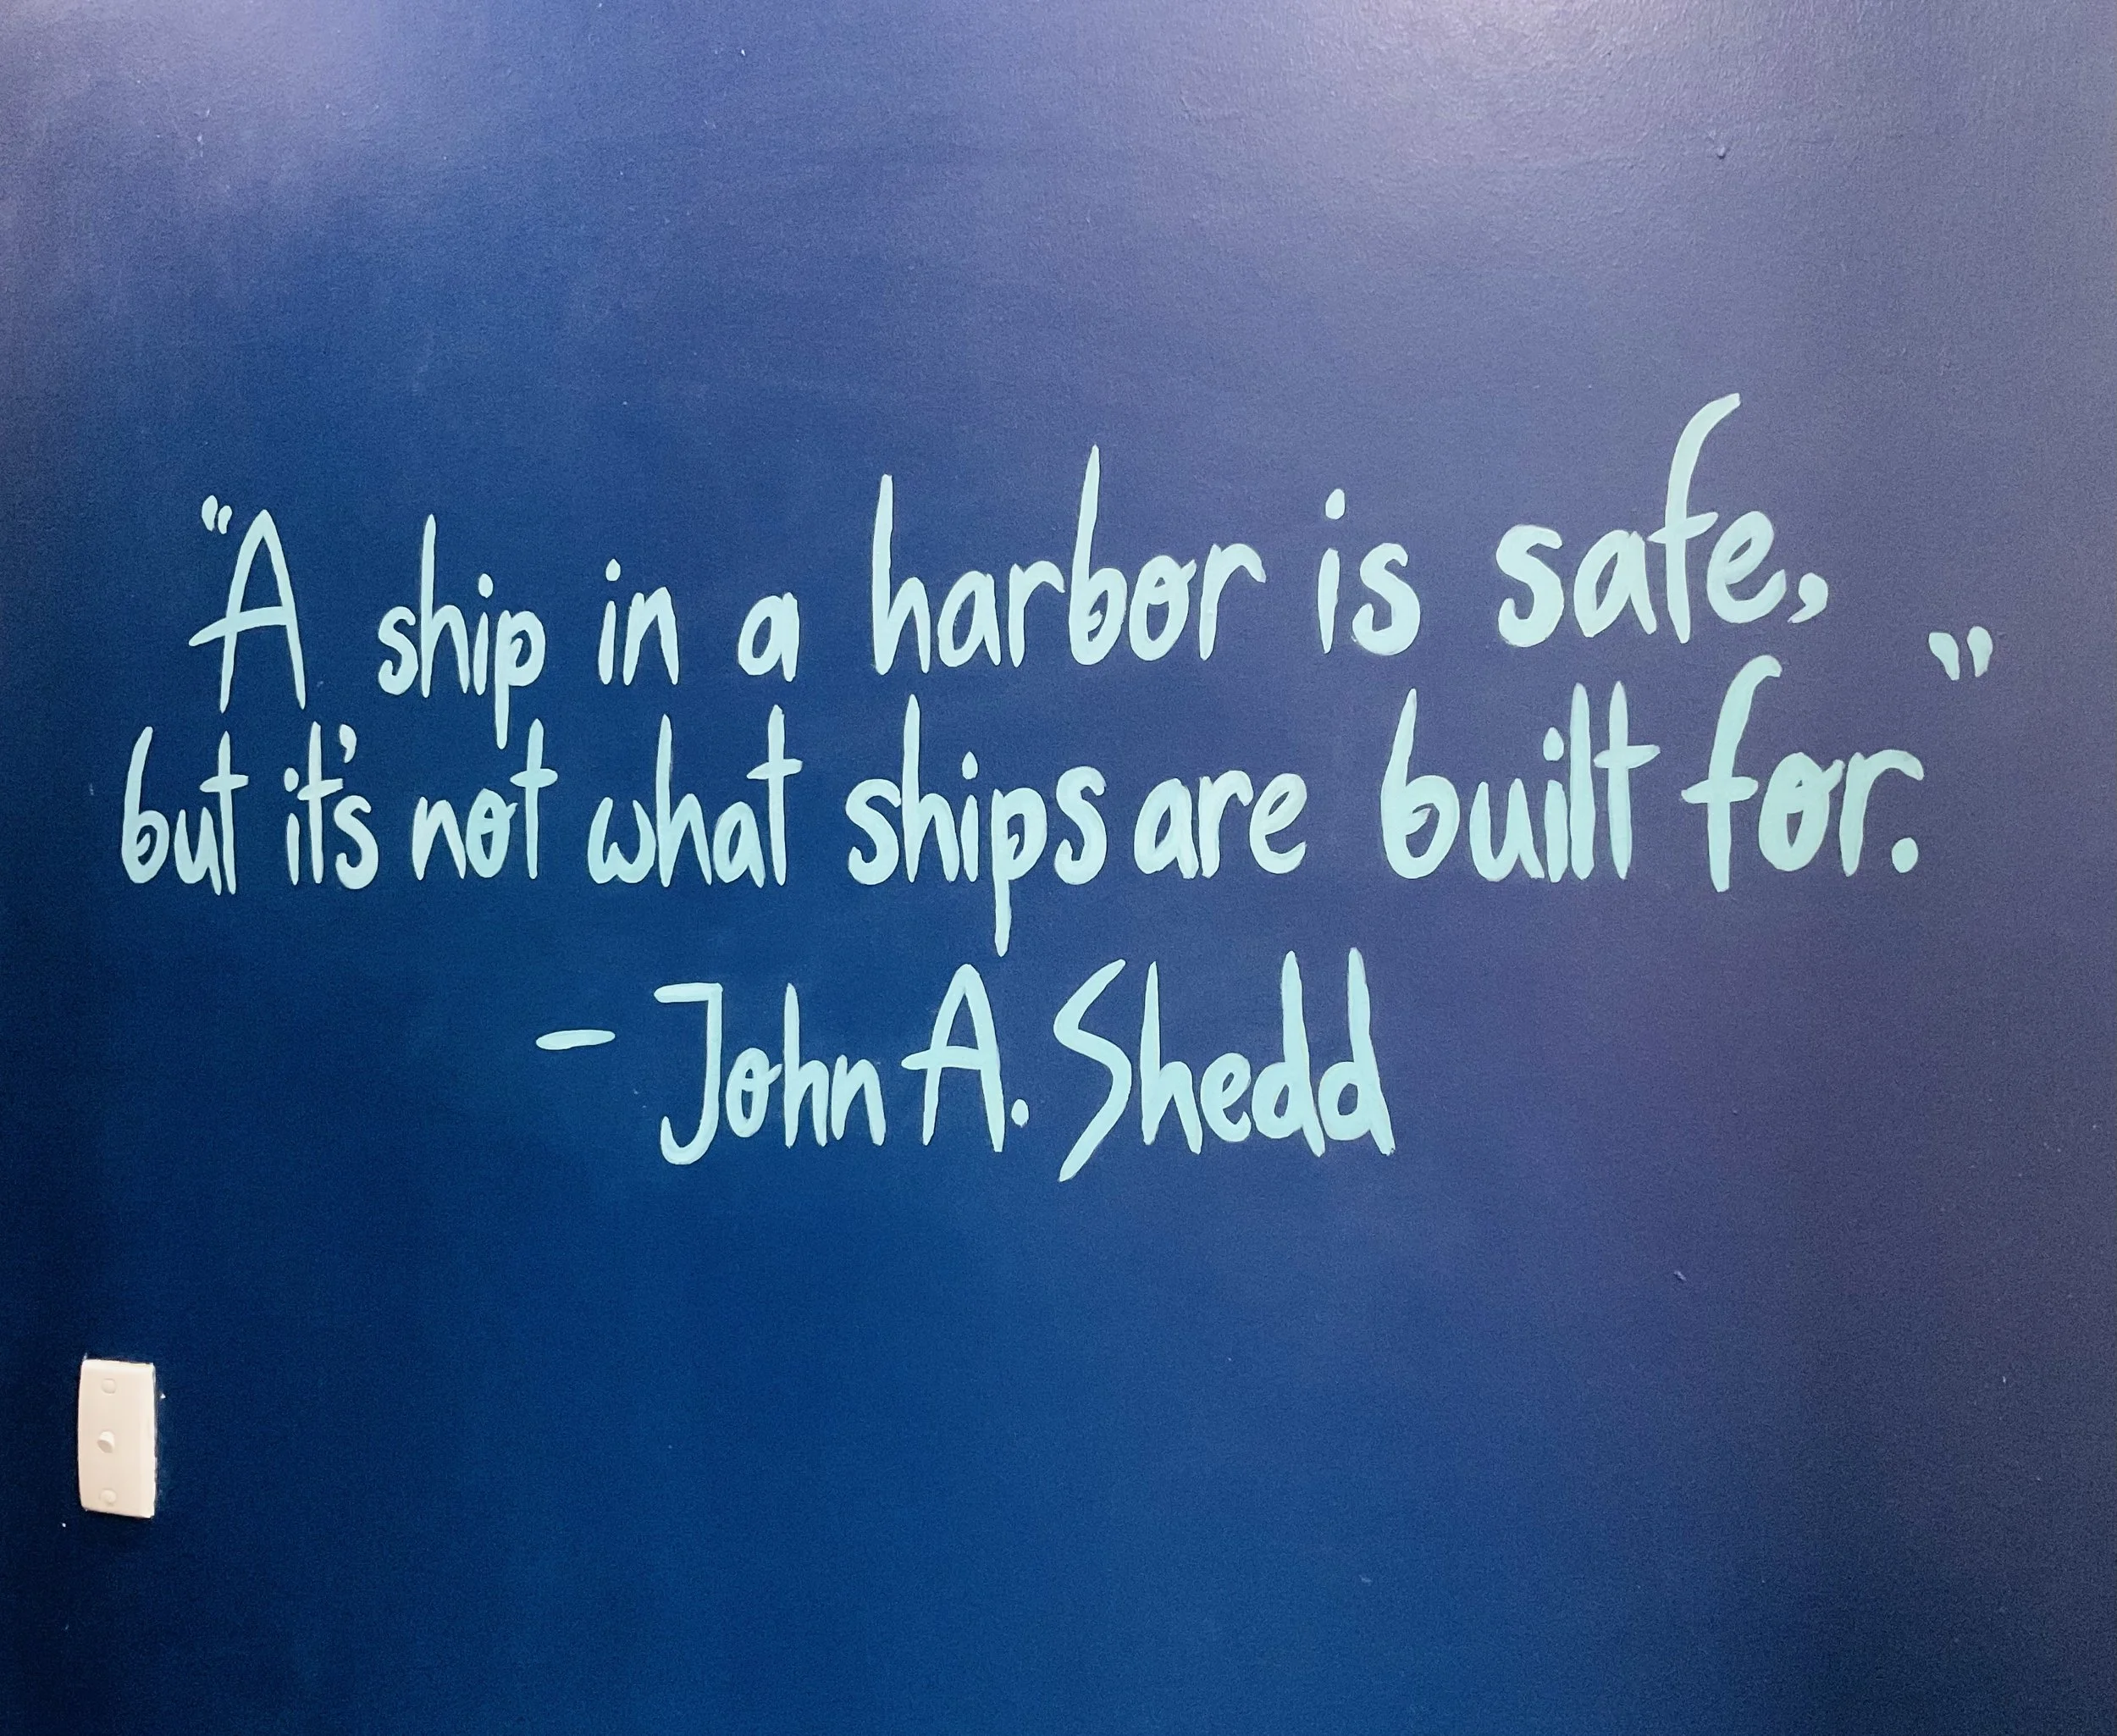 "A ship in a harbor is safe,
but it's not what ships are built for."
- John A. Shedd